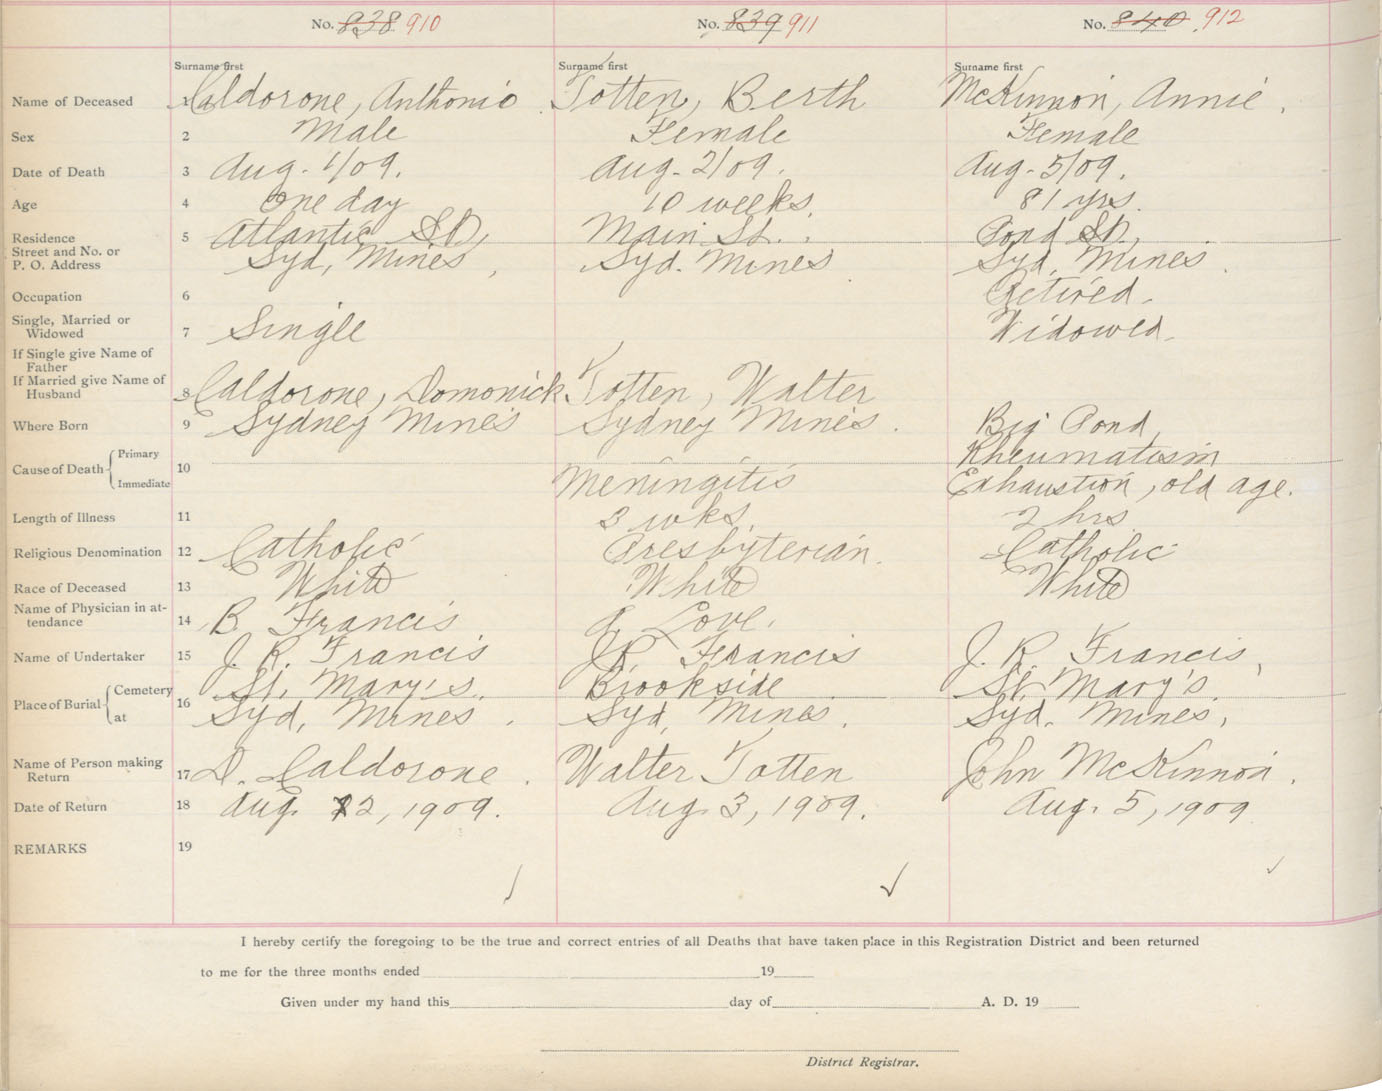 No. 838 910 No. 839 911 No. 840 912
Surname first Surname first Surname first
Name of Deceased 1 Caldorone, Anthonio Totten, Berth McKinnon, Annie.
Sex 2 Male Female Female
Date of Death 3 Aug. 1/09. Aug. 2/09. Aug. 5/09.
Age 4 One day 10 weeks. 81 yrs.
Residence 5 Atlantic St., Main St. Pond St.,
Street and No. or
P. O. Address Syd. Mines, Syd. Mines Syd. Mines.
Occupation 6 Retired.
Single, Married or
Widowed 7 Single Widowed.
If Single give Name of
Father
If Married give Name of
Husband 8 Caldorone, Domonick Totten, Walter
Where Born 9 Sydney Mines Sydney Mines. Big Pond
Cause of Death Primary 10 Rheumatism
Immediate Meningitis Exhaustion, old age.
Length of Illness 11 3 wks. 2 hrs
Religious Denomination 12 Catholic Presbyterian. Catholic
Race of Deceased 13 White White White
Name of Physician in at-
tendance 14 B. Francis Love.
Name of Undertaker 15 J. R. Francis J R Francis J. R. Francis,
Place of Burial Cemetery 16 St. Mary's. Brookside St. Mary's.
at Syd. Mines. Syd. Mines. Syd. Mines,
Name of Person making
Return 17 D. Caldorone. Walter Totten John McKinnon.
Date of Return 18 Aug. 2, 1909. Aug. 3, 1909. Aug. 5, 1909
REMARKS 19
I hereby certify the foregoing to be the true and correct entries of all Deaths that have taken place in this Registration District and been returned
to me for the three months ended 19
Given under my hand this day of A. D. 19
District Registrar.